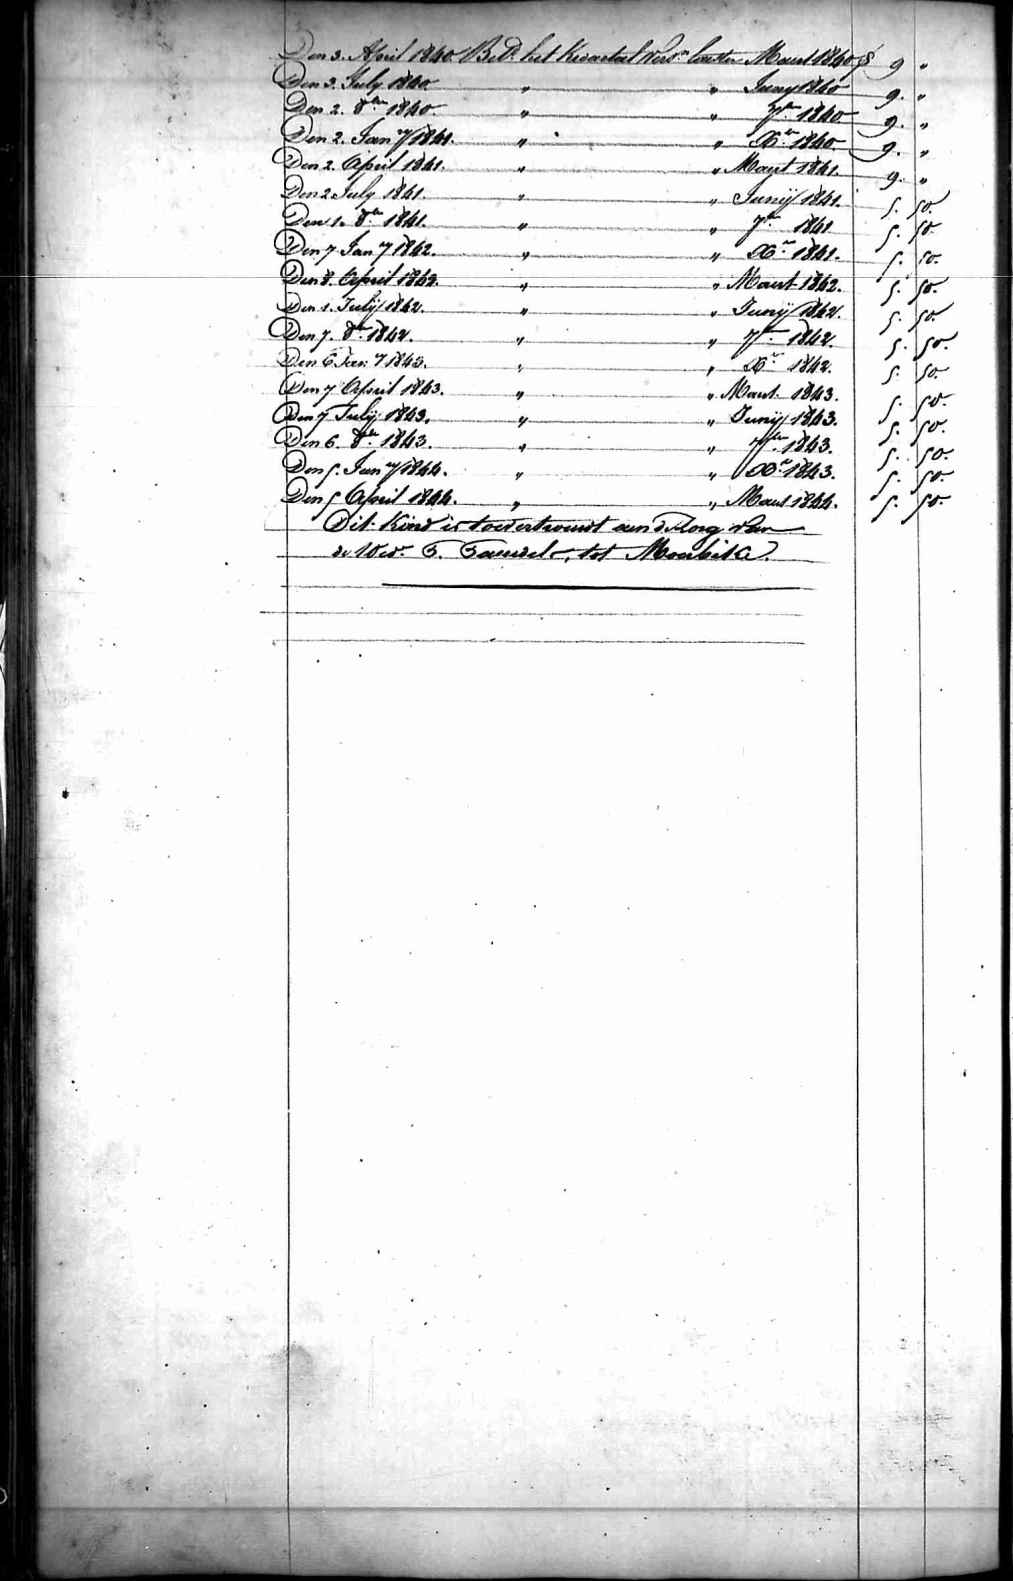 Den 3. April 1840. Betd. het Kwartaal Versn. laatsten Maart 1840 ƒ 9 "
Den 3. July 1840. " " Juny 1840 9. "
Den 2. 8ber 1840. " " 7ber 1840 9. "
Den 2. Jany 1841. " " Xber 1840 9. "
Den 2. April 1841. " " Maart 1841. 9. "
Den 2 July 1841. " " Junij 1841. 5. 50.
Den 1. 8ber 1841. " " 7ber 1841 5. 50.
Den 7 Jany 1842. " " Xber 1841. 5. 50.
Den 8. April 1842. " " Maart 1842. 5. 50.
Den 1. Julij 1842. " " Junij 1842. 5. 50.
Den 7. 8ber 1842. " " 7ber 1842. 5. 50.
Den 6 Jany 1843. " " Xber 1842. 5. 50.
Den 7 April 1843. " " Maart 1843. 5. 50.
Den 7 Julij 1843. " " Junij 1843. 5. 50.
Den 6. 8ber 1843. " " 7ber 1843. 5. 50.
Den 5. Jany 1844. " " Xber 1843. 5. 50.
Den 5 April 1844. " " Maart 1844. 5. 50.
Dit Kind is toevertrouwt aan de Zorg van
de Wed. tot